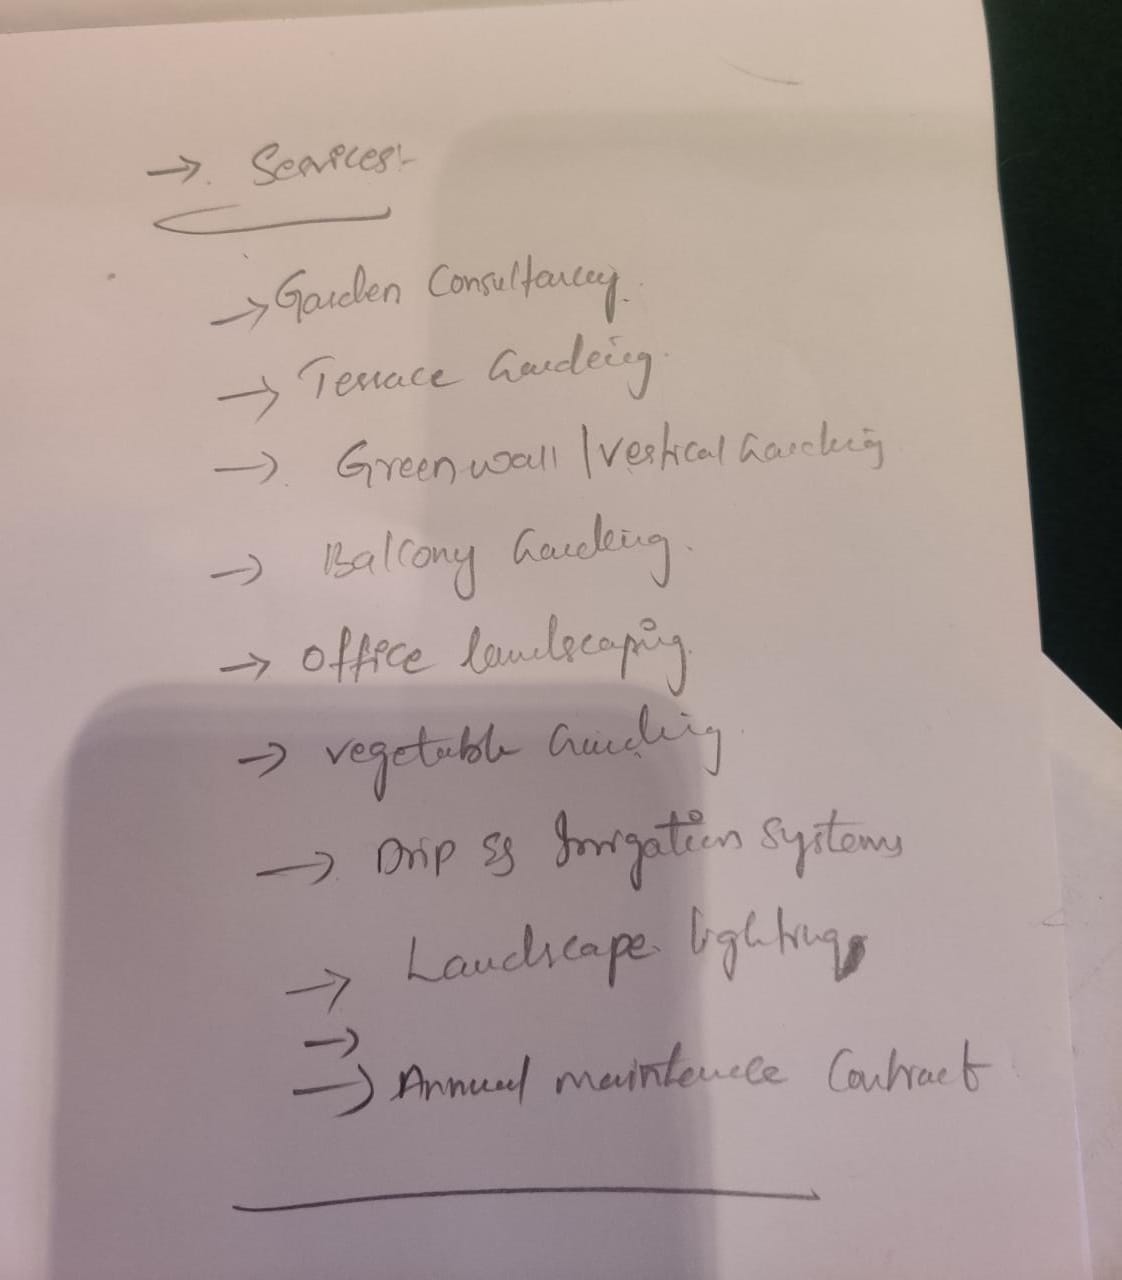 → Services:-
→ Garden Consultancy.
→ Terrace Gardeing.
→ Green wall / Vertical Gardeing
→ Balcony Gardeing.
→ Office landscaping.
→ vegetable Gardeing.
→ Drip Irrigation Systems
→ Landscape lighting
→
→ Annual maintenance Contract